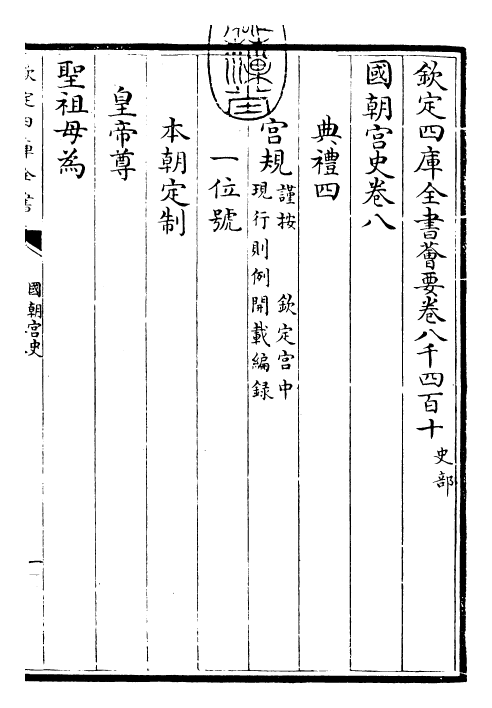 欽定四庫全書薈要卷八千四百十 史部
國朝宫史卷八
典禮四
宫規 謹按 欽定宫中
現行則例開載編録
一位號
本朝定制
皇帝尊
聖祖母為
欽定四庫全書
國朝宫史
一